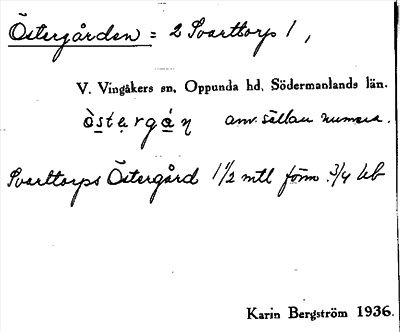 Östergården = 2 Svarttorp 1,
V. Vingåkers sn, Oppunda hd, Södermanlands län.
òsteṛgá̀ɳ anv. sällan numera.
Svarttorps Östergård 1 1/2 mtl förm. 3/4 Ub
Karin Bergström 1936.